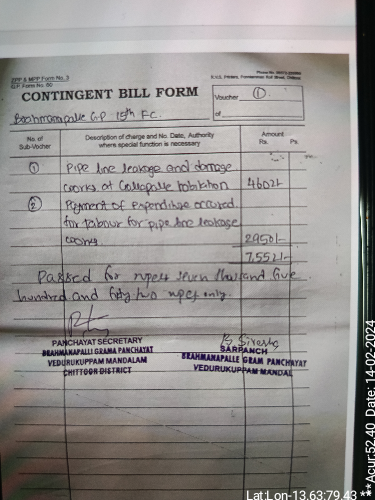 BPP & MPP Form No. 3
ELP Form No. 60
CONTINGENT BILL FORM
Voucher ①
of
Brahmanapalle G.P 15th F.C.
No. of Sub-Vocher
Description of charge and No. Date, Authority where special function is necessary
Amount
Rs. Ps.
① Pipe line leakage and damage
works at Gollapalle habitation 4602/-
② Payment of Expenditure occured
for labour for pipe line leakage
works 2950/-
7552/-
Passed for rupees seven thousand five
hundred and fifty two rupees only.
PANCHAYAT SECRETARY
BRAHMANAPALLI GRAMA PANCHAYAT
VEDURUKUPPAM MANDALAM
CHITTOOR DISTRICT
SARPANCH
BRAHMANAPALLE GRAM PANCHAYAT
VEDURUKUPPAM MANDAL
Lat:Lon-13.63:79.43 ***Acur:52.40 Date: 14-02-2024